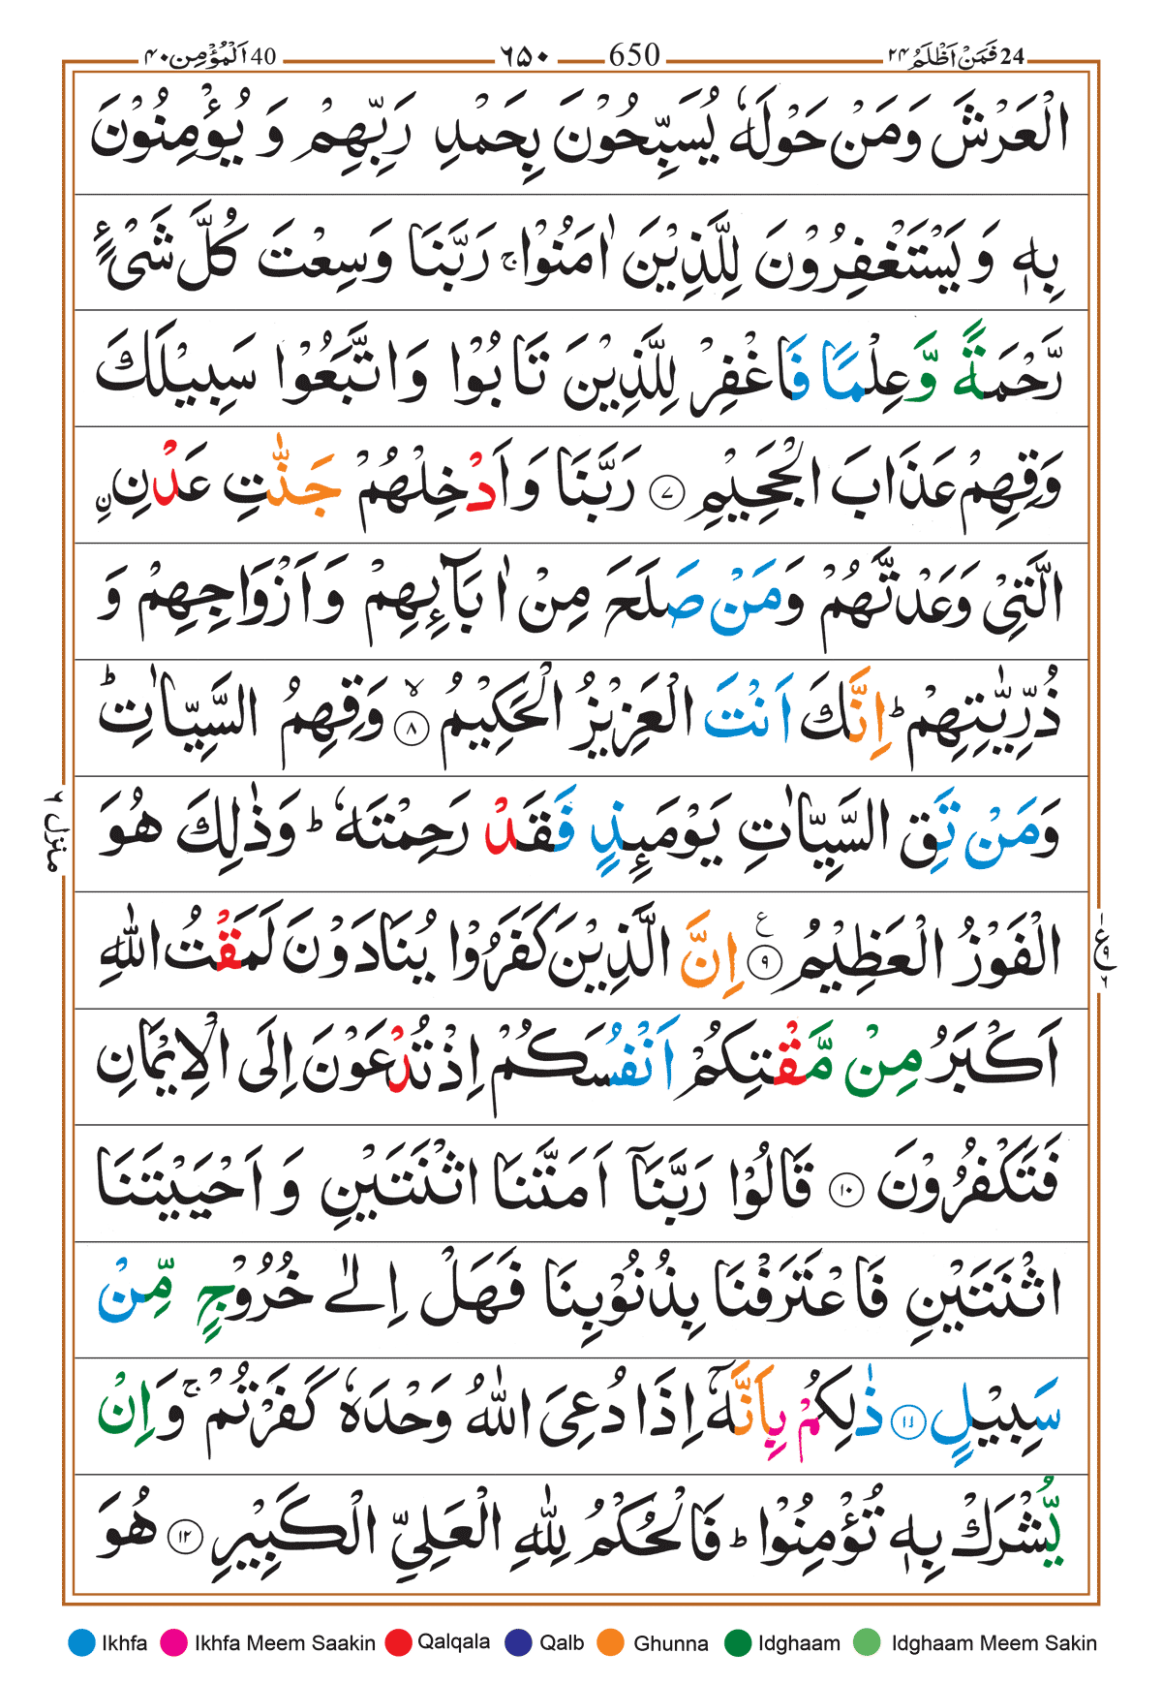 24 فَمَنْ اَظْلَمُ ۲۴ 650 ۶۵۰ 40 اَلْمُؤْمِن ۴۰
الْعَرْشَ وَمَنْ حَوْلَهٗ يُسَبِّحُوْنَ بِحَمْدِ رَبِّهِمْ وَ يُؤْمِنُوْنَ
بِهٖ وَ يَسْتَغْفِرُوْنَ لِلَّذِيْنَ اٰمَنُوْا ۚ رَبَّنَا وَسِعْتَ كُلَّ شَىْءٍ
رَّحْمَةً وَّ عِلْمًا فَاغْفِرْ لِلَّذِيْنَ تَابُوْا وَ اتَّبَعُوْا سَبِيْلَكَ
وَقِهِمْ عَذَابَ الْجَحِيْمِ ﴿۷﴾ رَبَّنَا وَ اَدْخِلْهُمْ جَنّٰتِ عَدْنِ نِ
الَّتِىْ وَعَدْتَّهُمْ وَمَنْ صَلَحَ مِنْ اٰبَآئِهِمْ وَ اَزْوَاجِهِمْ وَ
ذُرِّيّٰتِهِمْ ؕ اِنَّكَ اَنْتَ الْعَزِيْزُ الْحَكِيْمُ ۙ ﴿۸﴾ وَقِهِمُ السَّيِّاٰتِ ؕ
وَمَنْ تَقِ السَّيِّاٰتِ يَوْمَئِذٍ فَقَدْ رَحِمْتَهٗ ؕ وَذٰلِكَ هُوَ
الْفَوْزُ الْعَظِيْمُ ﴿۹﴾ ع اِنَّ الَّذِيْنَ كَفَرُوْا يُنَادَوْنَ لَمَقْتُ اللّٰهِ
اَكْبَرُ مِنْ مَّقْتِكُمْ اَنْفُسَكُمْ اِذْ تُدْعَوْنَ اِلَى الْاِيْمَانِ
فَتَكْفُرُوْنَ ﴿۱۰﴾ قَالُوْا رَبَّنَآ اَمَتَّنَا اثْنَتَيْنِ وَ اَحْيَيْتَنَا
اثْنَتَيْنِ فَاعْتَرَفْنَا بِذُنُوْبِنَا فَهَلْ اِلٰى خُرُوْجٍ مِّنْ
سَبِيْلٍ ﴿۱۱﴾ ذٰلِكُمْ بِاَنَّهٗٓ اِذَا دُعِىَ اللّٰهُ وَحْدَهٗ كَفَرْتُمْ ۚ وَ اِنْ
يُّشْرَكْ بِهٖ تُؤْمِنُوْا ؕ فَالْحُكْمُ لِلّٰهِ الْعَلِىِّ الْكَبِيْرِ ﴿۱۲﴾ هُوَ
منزل ۶
Ikhfa Ikhfa Meem Saakin Qalqala Qalb Ghunna Idghaam Idghaam Meem Sakin